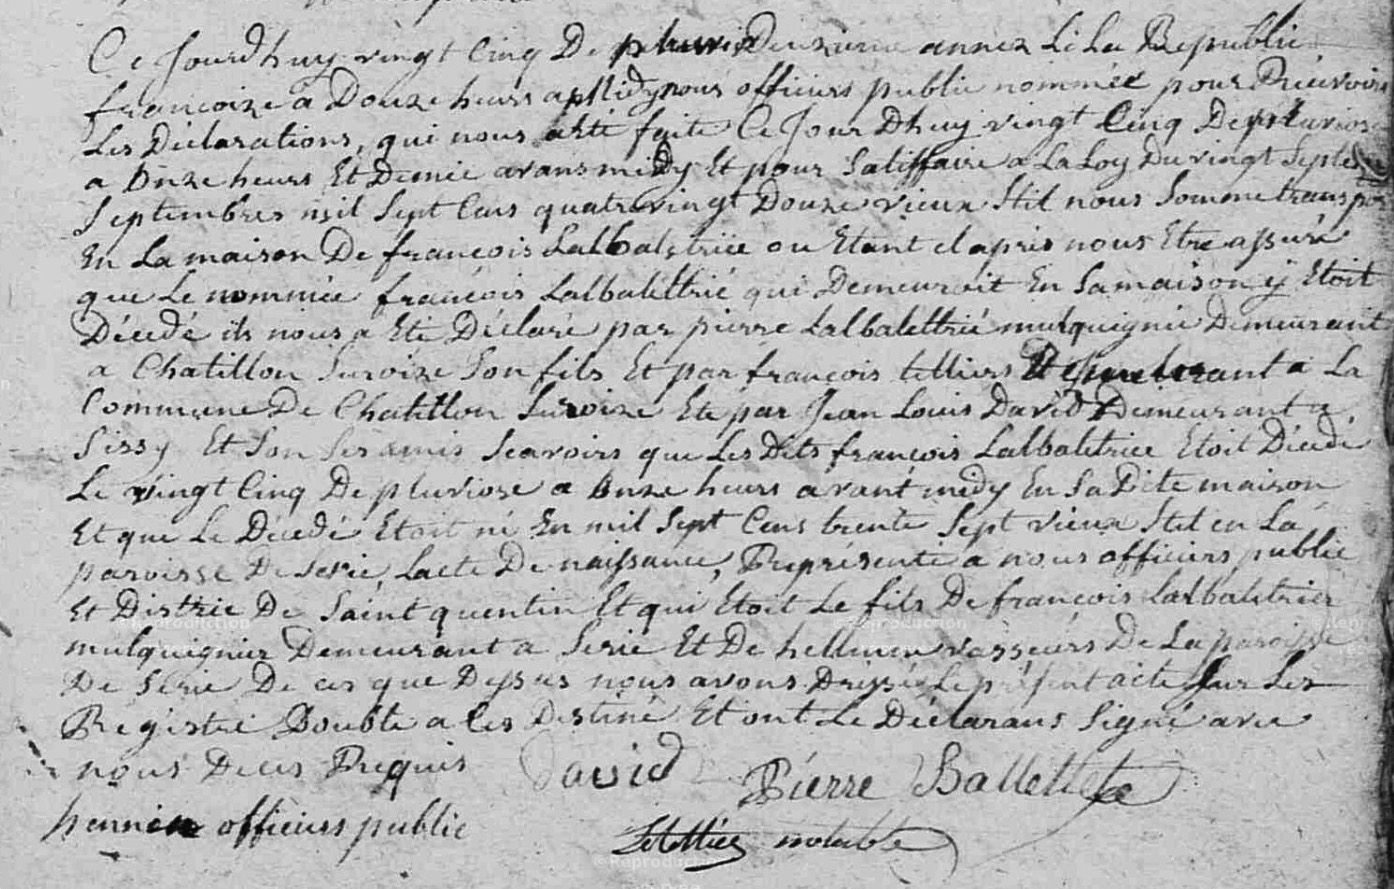 Ce Jourdhuy vingt Cinq De pluviose Deuxieme annez de La Republic
francoize a Douze heurs apMidy nous officiers public nommée pour Recevoir
Les Déclarations, qui nous a été faite Ce Jour Dhuy vingt Cinq De pluviose
a Onze heurs Et Demie avans midy Et pour Satiffaire a La Loy Du vingt Septe
Septembres mil Sept Cens quatrevingt Douze vieux Stil nous Somme transpor
En La maison De françois Lalbalétriée ou Etant et apris nous Etre assuré
que Le nommée françois Lalbalettrié qui Demeuroit En Samaison y Etoit
Décedé ils nous a Eté Déclaré par pierre Lalbalettrié mulquignié Demeurant
a Chatillon Suroize Son fils Et par françois telliers Demeurant a La
Commune De Chatillon Suroize Et par Jean Louis David Demeurant a
Sissy Et Son Ses amis Scavoirs que Les Dits françois Lalbaletriee Etoit Décedé
Le vingt Cinq De pluviose a Onze heurs avant midy En Sa Dite maison
Et que Le Décedé Etoit né En mil Sept Cens trente Sept vieux Stil en La
paroisse De Serie, Lacte De naissance, Représente a nous officiers public
Et Distric De Saint quentin Et qui Etoit Le fils De françois Lalbaletrier
mulquignier Demeurant a Serie Et De hellenne vasseurs De La paroisse
De Serie De ces que Dessus nous avons Dréssé Le présent acte Sur Les
Régistré Double a Ces Destiné Et ont Le Déclarans Signé avec
nous De ces Requis David Pierre Ballettre
hennin officiers public Letellier notable